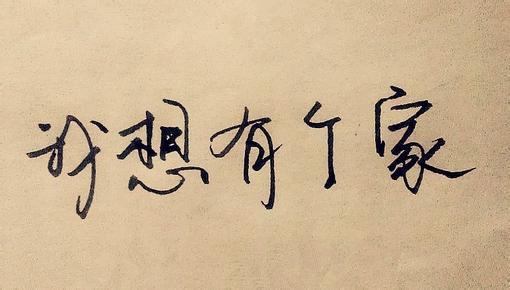 我想有个家